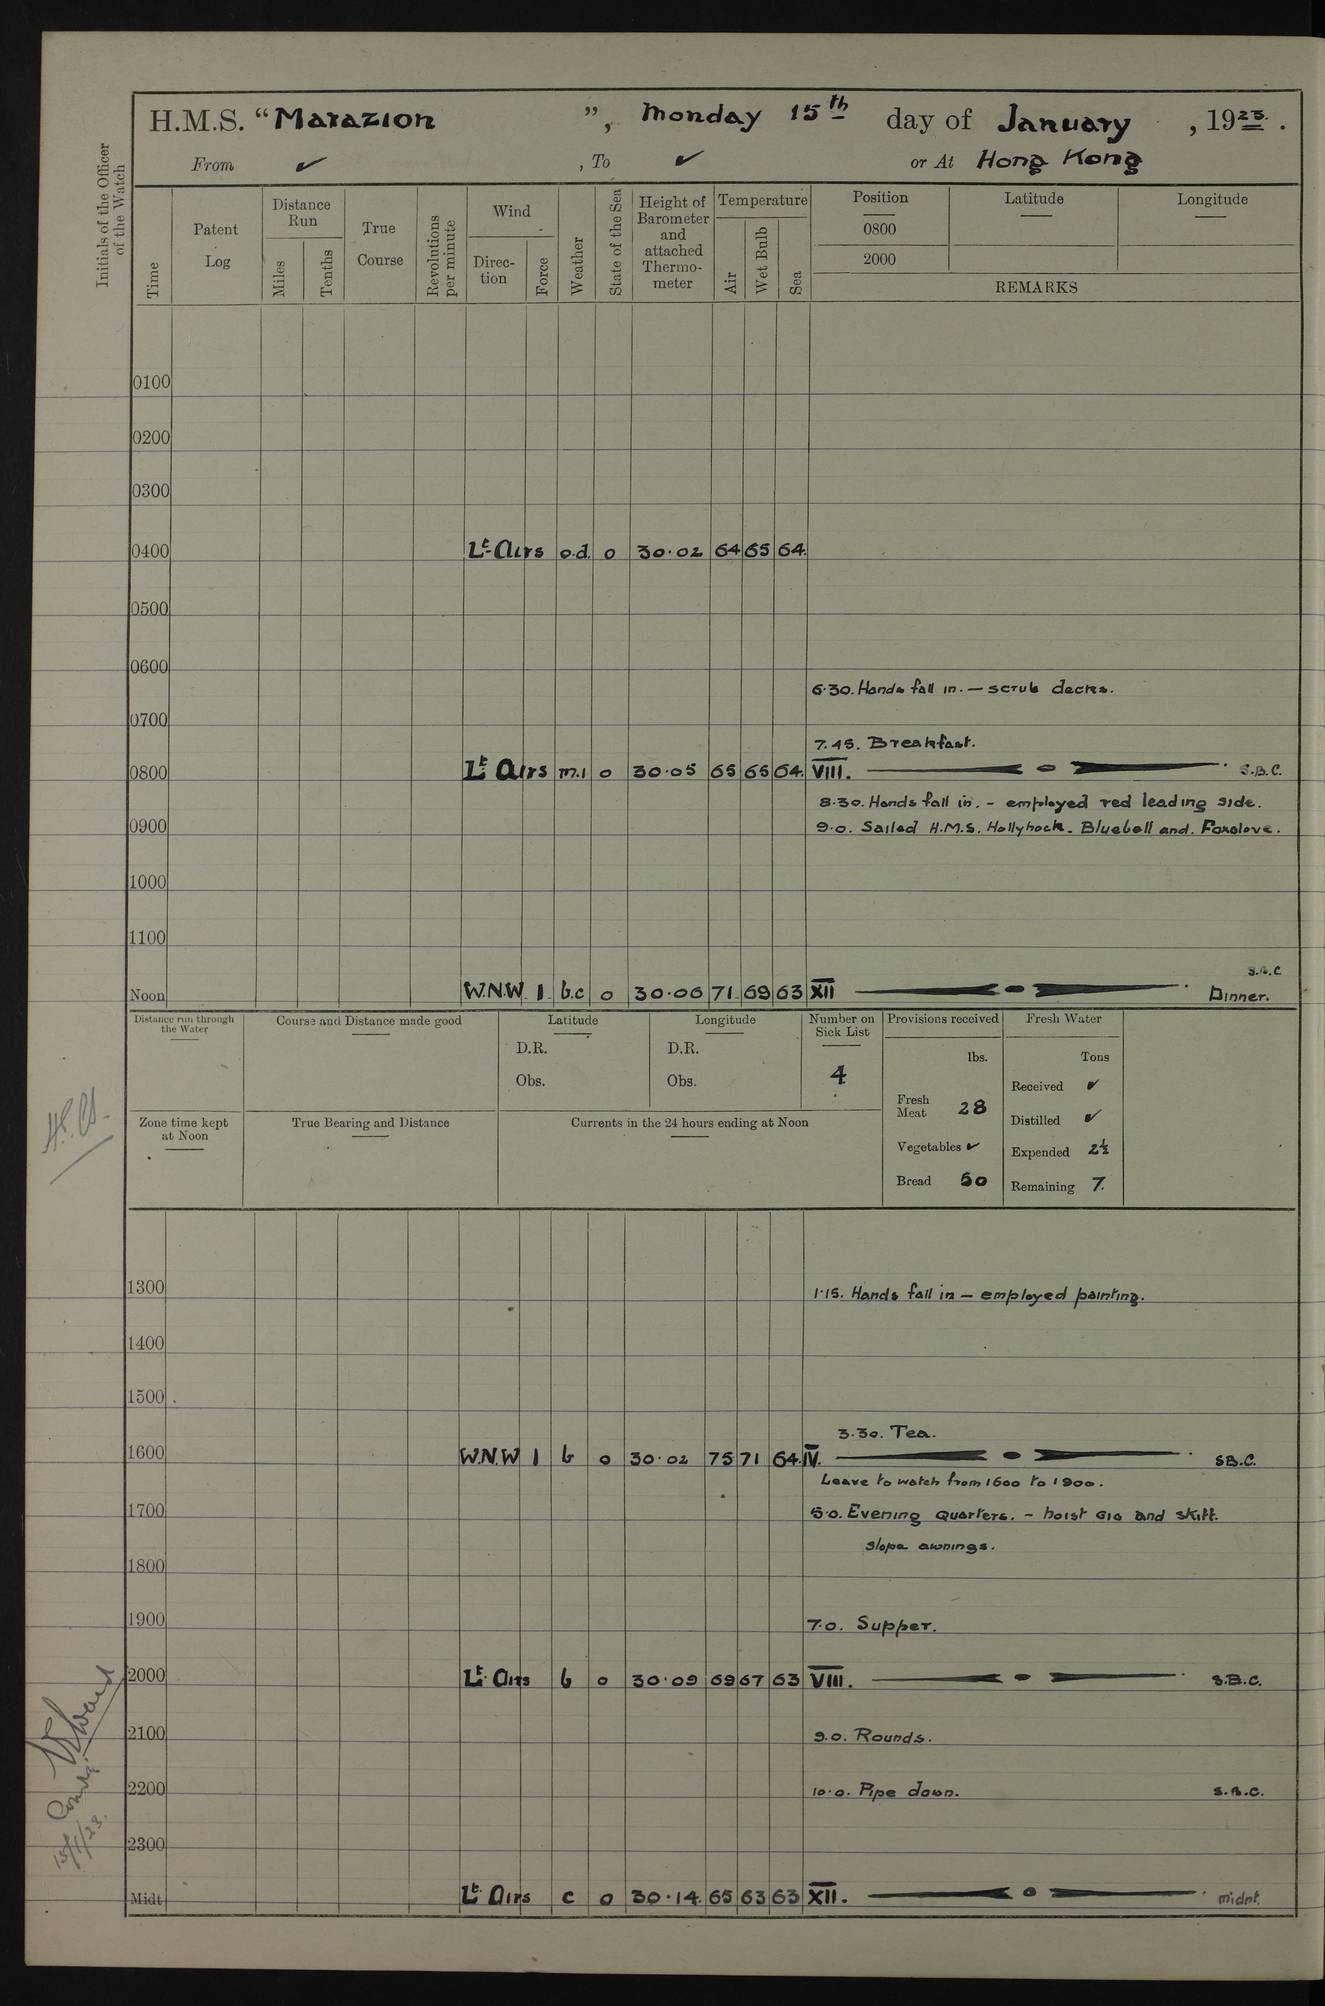 H.M.S. “Marazion”, Monday 15th day of January, 1923.
From ✓, To ✓ or At Hong Kong
Initials of the Officer of the Watch
Time
Patent Log
Distance Run
Miles
Tenths
True Course
Revolutions per minute
Wind
Direc-tion
Force
Weather
State of the Sea
Height of Barometer and attached Thermo-meter
Temperature
Air
Wet Bulb
Sea
Position Latitude Longitude
0800
2000
REMARKS
0100
0200
0300
0400 Lt. Airs o.d. 0 30.02 64 65 64.
0500
0600
6.30. Hands fall in. — scrub decks.
0700
7.45. Breakfast.
0800 Lt. Airs m.1 0 30.05 65 65 64. VIII. S.B.C.
8.30. Hands fall in. - employed red leading side.
0900 9.0. Sailed H.M.S. Hollyhock. Bluebell and Foxglove.
1000
1100
S.B.C
Noon W.N.W 1 b.c 0 30.06 71 69 63 XII Dinner.
Distance run through the Water
Course and Distance made good
Latitude
D.R.
Obs.
Longitude
D.R.
Obs.
Number on Sick List
4
Provisions received
lbs.
Fresh Meat 28
Vegetables ✓
Bread 50
Fresh Water
Tons
Received ✓
Distilled ✓
Expended 2½
Remaining 7.
Zone time kept at Noon
True Bearing and Distance
Currents in the 24 hours ending at Noon
1300 1.15. Hands fall in — employed painting.
1400
1500
3.30. Tea.
1600 W.N.W 1 b 0 30.02 75 71 64. IV. S.B.C.
Leave to watch from 1600 to 1900.
1700 5.0. Evening quarters. - hoist Gig and skiff.
slope awnings.
1800
1900 7.0. Supper.
2000 Lt. Airs b 0 30.09 69 67 63 VIII. S.B.C.
2100 9.0. Rounds.
2200 10.0. Pipe down. S.B.C.
2300
Midt Lt. Airs c 0 30.14. 65 63 63 XII. midnt.
15/1/23.